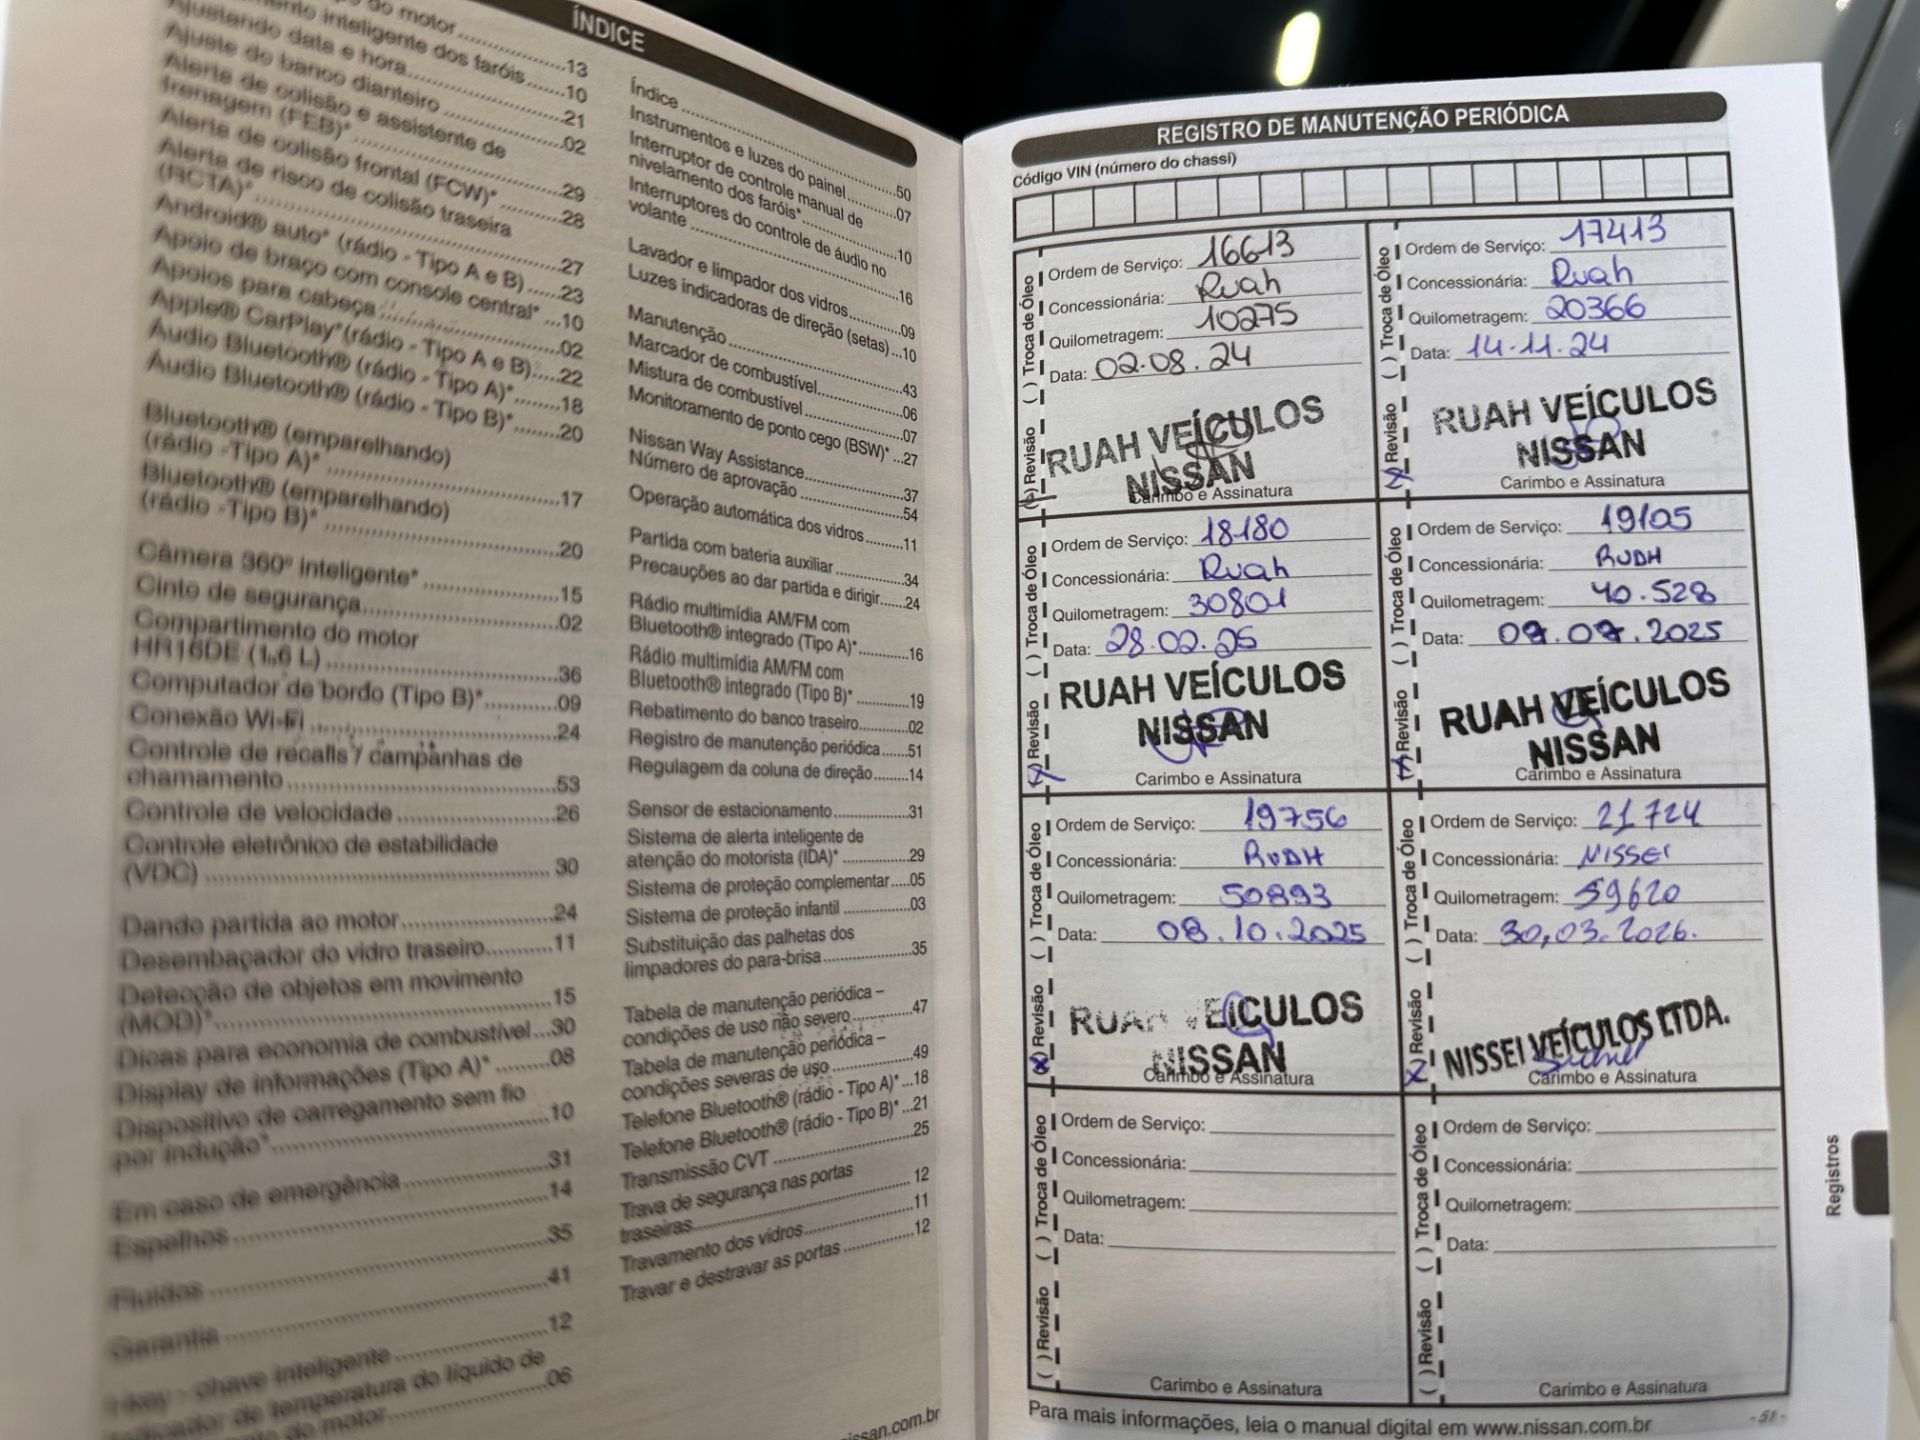 ÍNDICE
do motor..........13
inteligente dos faróis.....10
Ajustando data e hora..........21
Ajuste do banco dianteiro..........02
Alerta de colisão e assistente de
frenagem (FEB)*..........29
Alerta de colisão frontal (FCW)*..........28
Alerta de risco de colisão traseira
(RCTA)*..........27
Android® auto* (rádio - Tipo A e B).....23
Apoio de braço com console central*...10
Apoios para cabeça..........02
Apple® CarPlay*(rádio - Tipo A e B).....22
Áudio Bluetooth® (rádio - Tipo A)*........18
Áudio Bluetooth® (rádio - Tipo B)*........20
Bluetooth® (emparelhando)
(rádio -Tipo A)*..........17
Bluetooth® (emparelhando)
(rádio -Tipo B)*..........20
Câmera 360º inteligente*..........15
Cinto de segurança..........02
Compartimento do motor
HR16DE (1,6 L)..........36
Computador de bordo (Tipo B)*..........09
Conexão Wi-Fi..........24
Controle de recalls / campanhas de
chamamento..........53
Controle de velocidade..........26
Controle eletrônico de estabilidade
(VDC)..........30
Dando partida ao motor..........24
Desembaçador do vidro traseiro..........11
Detecção de objetos em movimento
(MOD)*..........15
Dicas para economia de combustível...30
Display de informações (Tipo A)*........08
Dispositivo de carregamento sem fio
por indução*..........10
Em caso de emergência..........31
Espelhos..........14
Fluidos..........35
Garantia..........41
I-key - chave inteligente..........12
Indicador de temperatura do líquido de
do motor..........06
Índice..........50
Instrumentos e luzes do painel..........07
Interruptor de controle manual de
nivelamento dos faróis*..........10
Interruptores do controle de áudio no
volante..........16
Lavador e limpador dos vidros..........09
Luzes indicadoras de direção (setas)...10
Manutenção..........43
Marcador de combustível..........06
Mistura de combustível..........07
Monitoramento de ponto cego (BSW)*...27
Nissan Way Assistance..........37
Número de aprovação..........54
Operação automática dos vidros.........11
Partida com bateria auxiliar..........34
Precauções ao dar partida e dirigir......24
Rádio multimídia AM/FM com
Bluetooth® integrado (Tipo A)*..........16
Rádio multimídia AM/FM com
Bluetooth® integrado (Tipo B)*..........19
Rebatimento do banco traseiro..........02
Registro de manutenção periódica......51
Regulagem da coluna de direção.........14
Sensor de estacionamento..........31
Sistema de alerta inteligente de
atenção do motorista (IDA)*..........29
Sistema de proteção complementar.....05
Sistema de proteção infantil..........03
Substituição das palhetas dos
limpadores do para-brisa..........35
Tabela de manutenção periódica –
condições de uso não severo..........47
Tabela de manutenção periódica –
condições severas de uso..........49
Telefone Bluetooth® (rádio - Tipo A)*...18
Telefone Bluetooth® (rádio - Tipo B)*...21
Transmissão CVT..........25
Trava de segurança nas portas
traseiras..........12
Travamento dos vidros..........11
Travar e destravar as portas..........12
nissan.com.br
REGISTRO DE MANUTENÇÃO PERIÓDICA
Código VIN (número do chassi)
( ) Revisão ( ) Troca de Óleo
Ordem de Serviço: 16613
Concessionária: Ruah
Quilometragem: 10275
Data: 02.08.24
RUAH VEÍCULOS
NISSAN
Carimbo e Assinatura
(X) Revisão ( ) Troca de Óleo
Ordem de Serviço: 17413
Concessionária: Ruah
Quilometragem: 20366
Data: 14.11.24
RUAH VEÍCULOS
NISSAN
Carimbo e Assinatura
(X) Revisão ( ) Troca de Óleo
Ordem de Serviço: 18180
Concessionária: Ruah
Quilometragem: 30801
Data: 28.02.25
RUAH VEÍCULOS
NISSAN
Carimbo e Assinatura
(X) Revisão ( ) Troca de Óleo
Ordem de Serviço: 19105
Concessionária: RUAH
Quilometragem: 40.528
Data: 07.07.2025
RUAH VEÍCULOS
NISSAN
Carimbo e Assinatura
(X) Revisão ( ) Troca de Óleo
Ordem de Serviço: 19756
Concessionária: RUAH
Quilometragem: 50893
Data: 08.10.2025
RUAH VEÍCULOS
NISSAN
Carimbo e Assinatura
(X) Revisão ( ) Troca de Óleo
Ordem de Serviço: 21724
Concessionária: NISSEI
Quilometragem: 59620
Data: 30,03.2026.
NISSEI VEÍCULOS LTDA.
Carimbo e Assinatura
( ) Revisão ( ) Troca de Óleo
Ordem de Serviço:
Concessionária:
Quilometragem:
Data:
Carimbo e Assinatura
( ) Revisão ( ) Troca de Óleo
Ordem de Serviço:
Concessionária:
Quilometragem:
Data:
Carimbo e Assinatura
Registros
Para mais informações, leia o manual digital em www.nissan.com.br
- 51 -